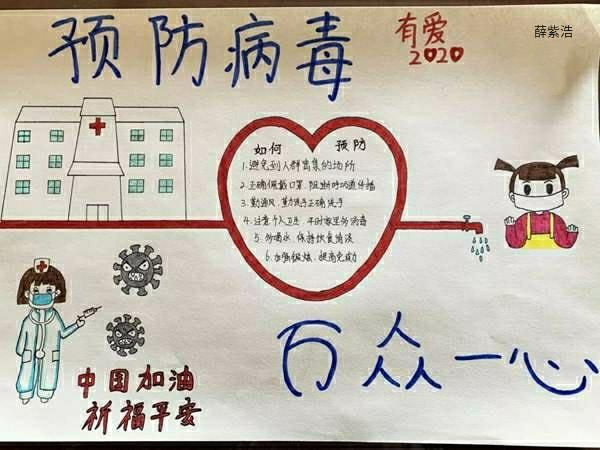 预防病毒
有爱
2020
薛紫浩
如何 预防
1.避免到人群密集的场所
2.正确佩戴口罩,阻断呼吸道传播
3.勤通风,勤洗手正确洗手
4.注意个人卫生,平时家里
5.多喝水 保持饮食清淡
6.加强锻炼,提高免疫力
中国加油
祈福平安
万众一心